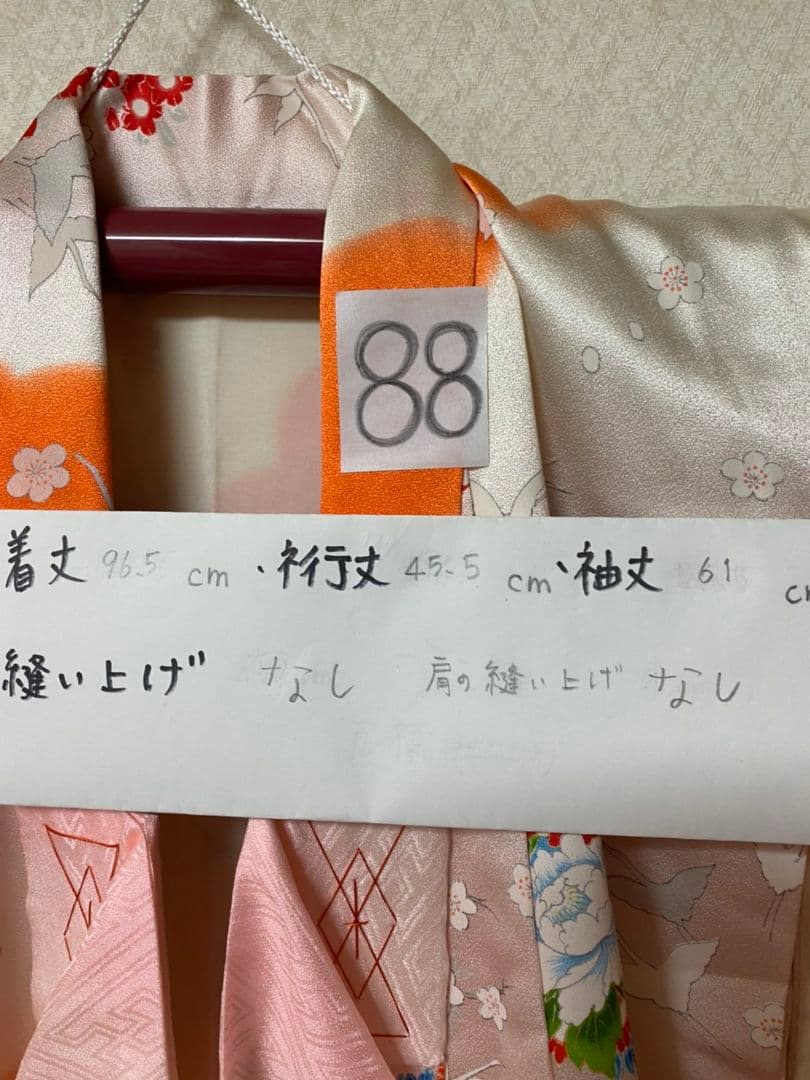 88
着丈 96.5 cm・裄丈 45.5 cm・袖丈 61 cm
縫い上げ なし 肩の縫い上げ なし